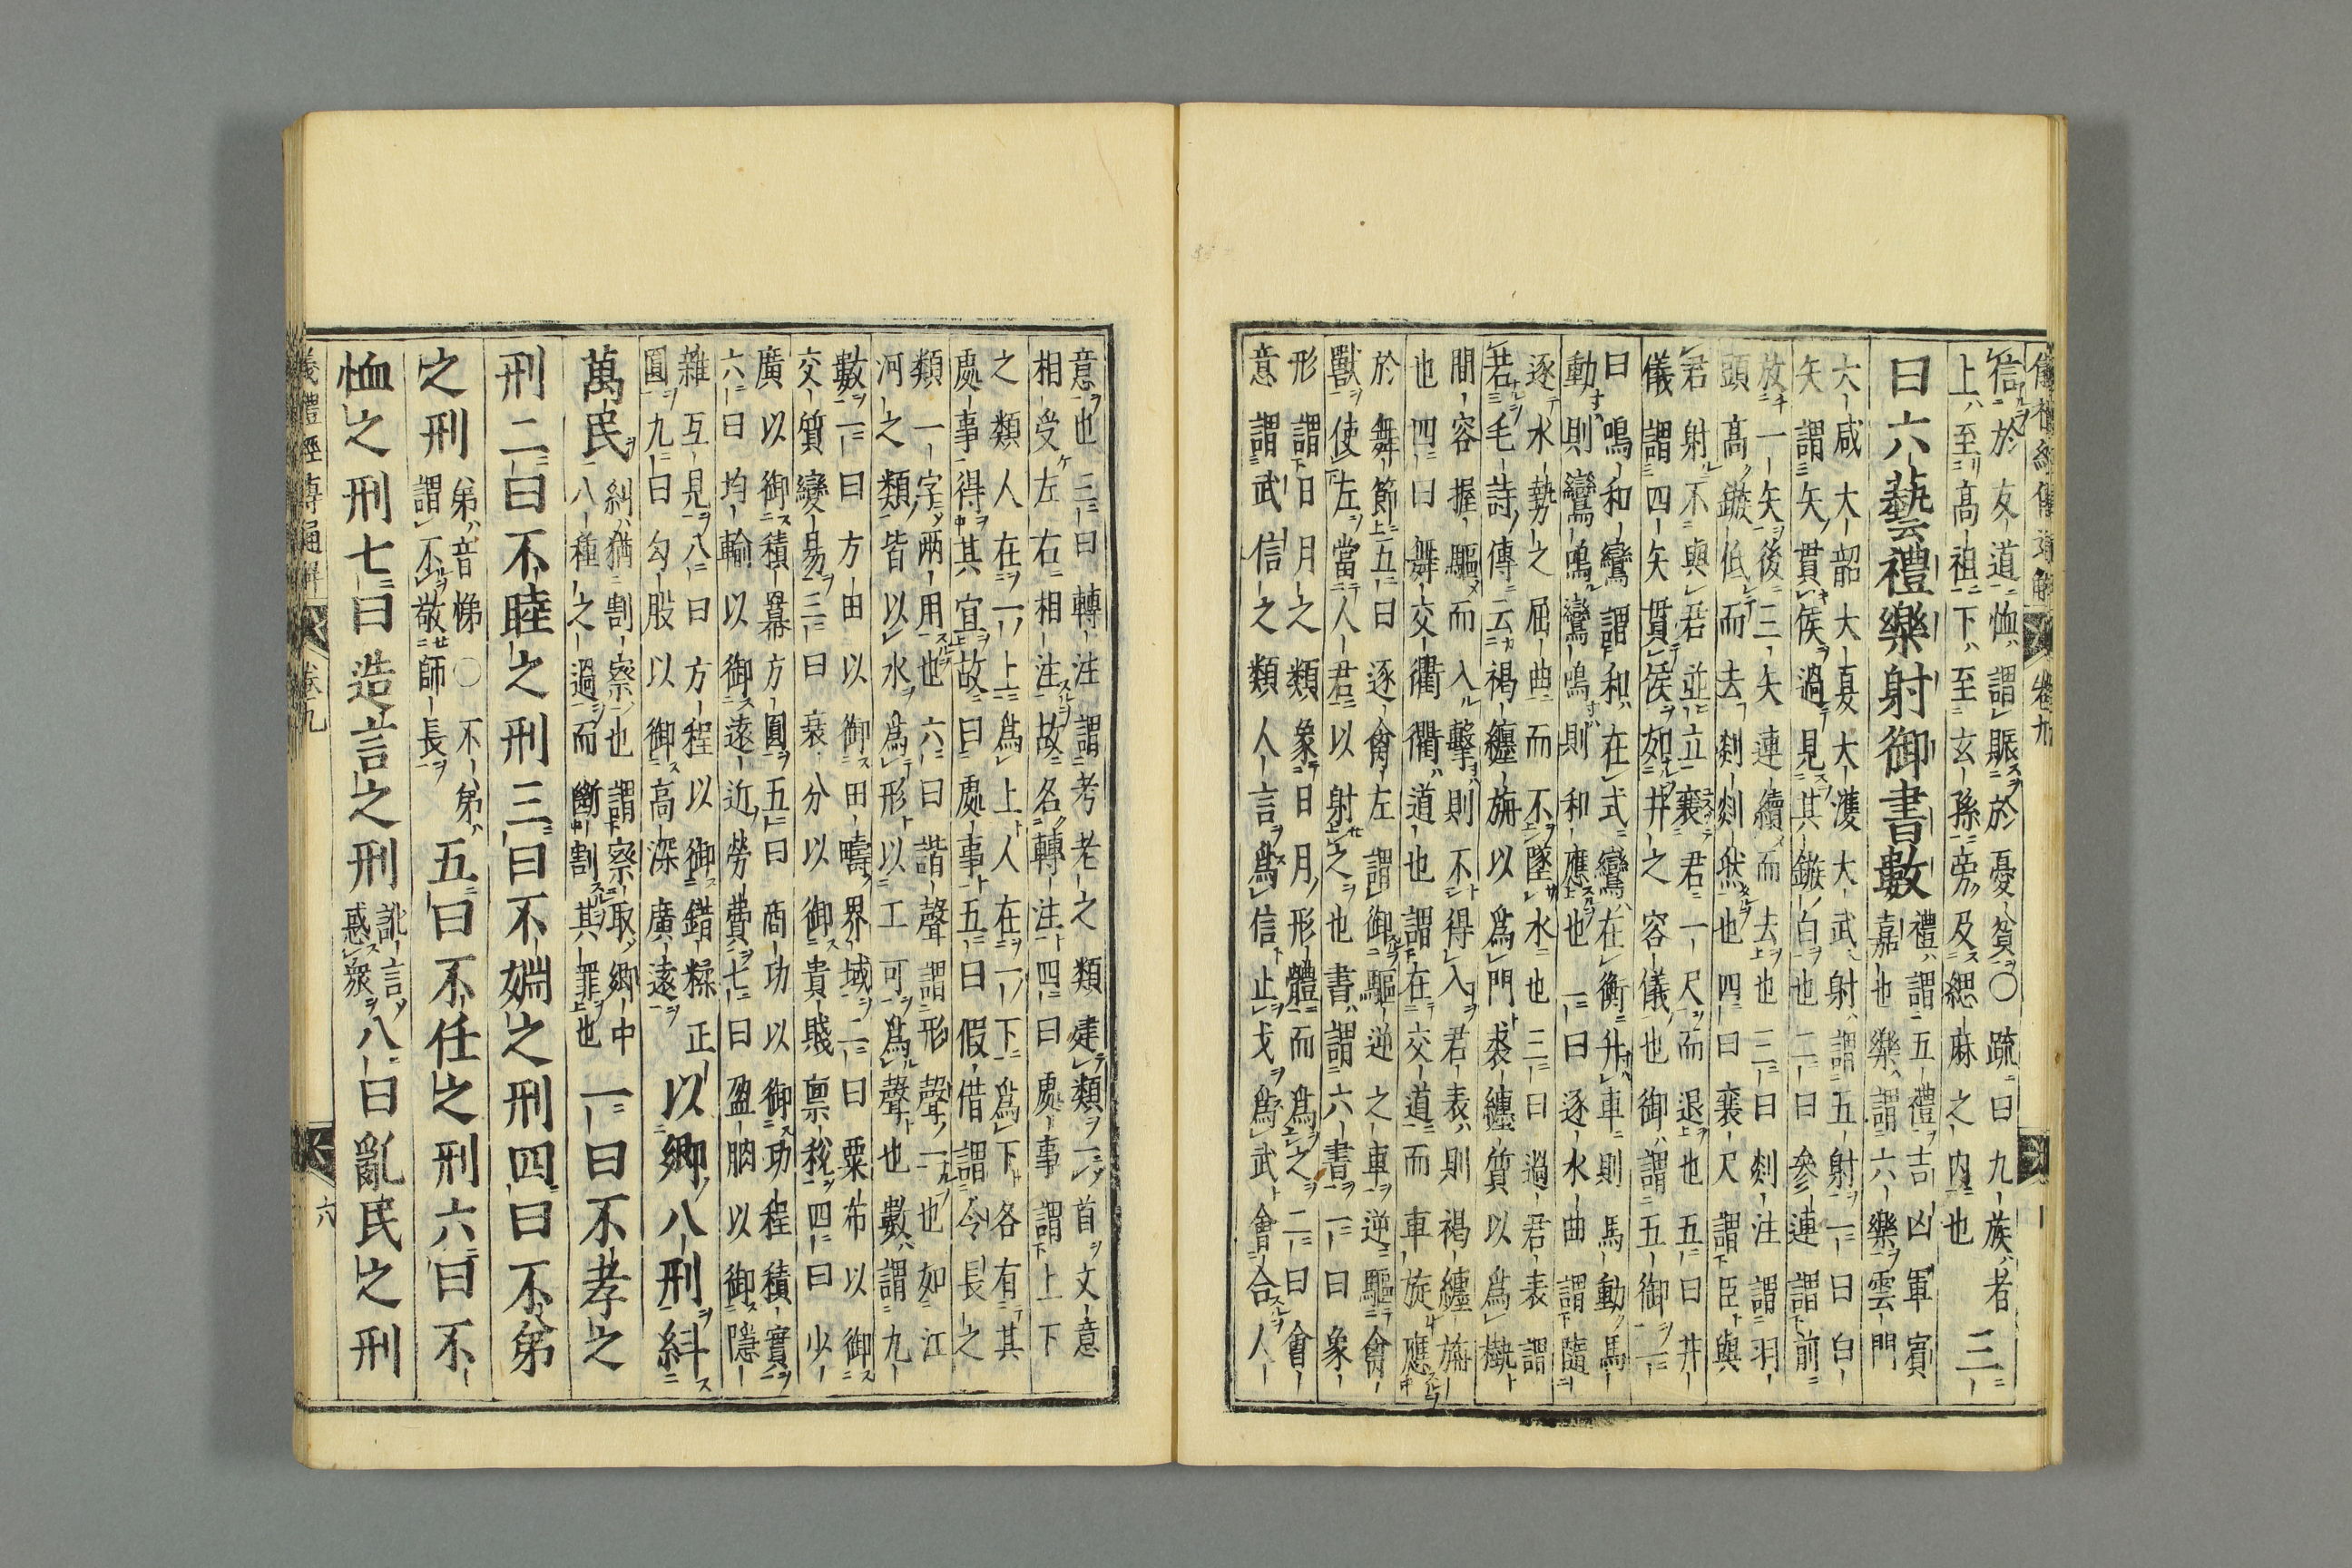 儀禮經傳通解 卷九
信於友道恤謂賑於憂貧〇疏曰九族者
上至高祖下至玄孫旁及緦麻之内也
三
曰六藝禮樂射御書數
禮謂五禮吉凶軍賓
嘉也樂謂六樂雲門
大咸大韶大夏大濩大武射謂五射一曰白
矢謂矢貫侯過見其鏃白也二曰參連謂前
放一矢後三矢連續而去也三曰剡注謂羽
頭高鏃低而去剡剡然也四曰襄尺謂臣與
君射不與君並立襄君一尺而退也五曰井
儀謂四矢貫侯如井之容儀也御謂五御一
曰鳴和鸞謂和在式鸞在衡升車則馬動馬
動則鸞鳴鸞鳴則和應也一曰逐水曲謂隨
逐水勢之屈曲而不墜水也三曰過君表謂
若毛詩傳云褐纏旃以為門裘纏質以為槸
間容握驅而入擊則不得入君表則褐纏旃
也四曰舞交衢衢道也謂在交道而車旋應
於舞節五曰逐禽左謂御驅逆之車逆驅禽
獸使左當人君以射之也書謂六書一曰象
形謂日月之類象日月形體而為之二曰會
意謂武信之類人言為信止戈為武會合人
意也三曰轉注謂考老之類建類一首文意
相受左右相注故名轉注四曰處事謂上下
之類人在一上為上人在一下為下各有其
處事得其宜故曰處事五曰假借謂令長之
類一字兩用也六曰諧聲謂形聲一也如江
河之類皆以水為形以工可為聲也數謂九
數一曰方田以御田疇界域二曰粟布以御
交質變易三曰衰分以御貴賤禀稅四曰少
廣以御積冪方圓五曰商功以御功程積實
六曰均輸以御遠近勞費七曰盈朒以御隱
雜互見八曰方程以御錯糅正
圓九曰勾股以御高深廣遠
以鄉八刑糾
萬民
糾猶割察也謂察取鄉中
八種之過而斷割其罪也
一曰不孝之
刑二曰不睦之刑三曰不婣之刑四曰不弟
之刑
弟音悌〇不弟
謂不敬師長
五曰不任之刑六曰不
恤之刑七曰造言之刑
訛言
惑衆
八曰亂民之刑
儀禮經傳通解 卷九 六